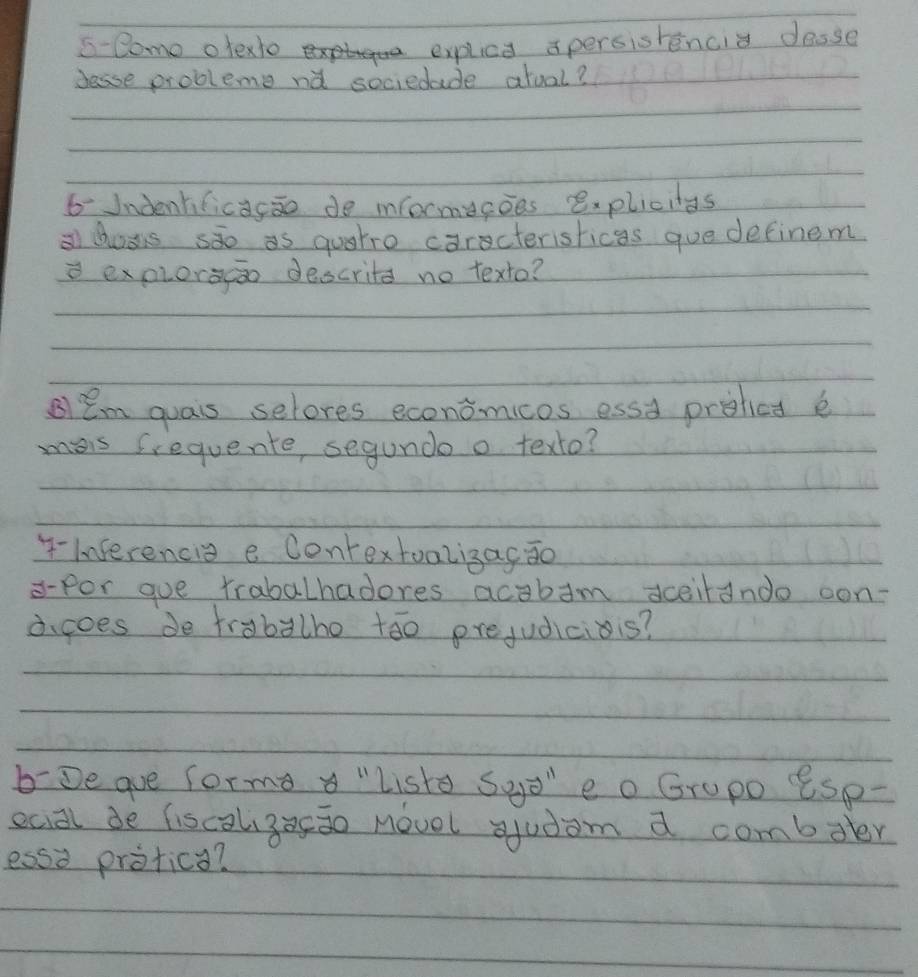 5-Como o texto explique explica a persistência desse
desse problema na sociedade atual?
6- Indentificação de informações Explicitas
a) Quais são as quatro caracteristicas que definem
a exploração descrita no texto?
B) Em quais setores econômicos essa prática é
mais frequente, segundo o texto?
7- Inferencia e Contextualização
a-Por que trabalhadores acabam aceitando con-
dições de trabalho tão prejudiciais?
b- De que forma a "Lista Suja" e o Grupo Esp-
ecial de fiscalização Móvel ajudam a combater
essa prática?